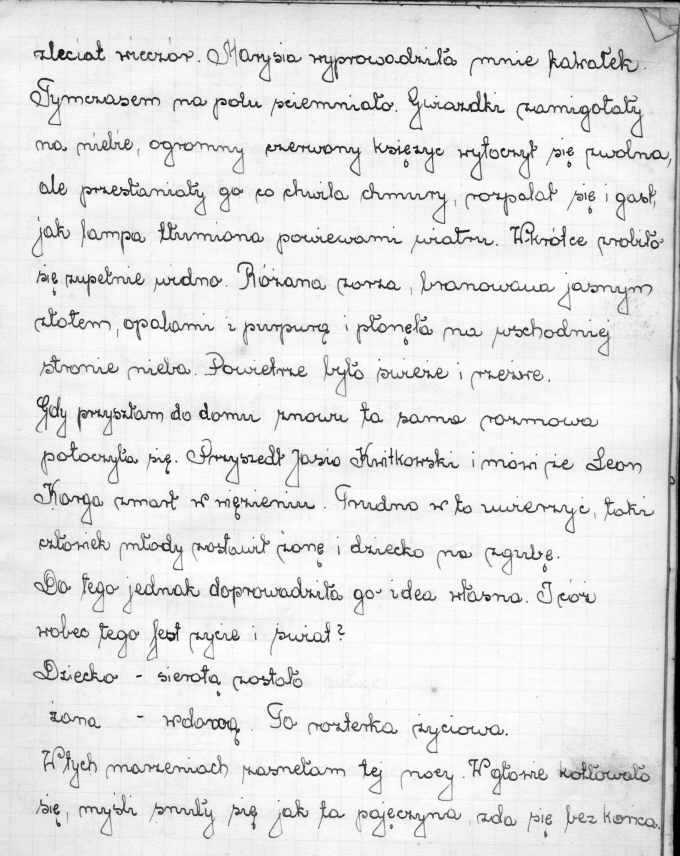 zleciał wieczór. Marysia wyprowadziła mnie kawałek.
Tymczasem na polu ściemniało. Gwiazdki zamigotały
na niebie, ogromny czerwony księżyc wytoczył się zwolna,
ale przesłaniały go co chwila chmury, rozpalał się i gasł,
jak lampa tłumiona powiewami wiatru. Wkrótce zrobiło
się zupełnie widno. Różana zorza, branowana jasnym
złotem, opalami i purpurą i płonęła na wschodniej
stronie nieba. Powietrze było świeże i rzeźwe.
Gdy przyszłam do domu znowu ta sama rozmowa
potoczyła się. Przyszedł Jasio Kwitkowski i mówi że Leon
Karga zmarł w więzieniu. Trudno w to uwierzyć, taki
człowiek młody zostawił żonę i dziecko na zgubę.
Do tego jednak doprowadziła go idea własna. I cóż
wobec tego jest życie i świat?
Dziecko - sierotą zostało
żona - wdową. To rozterka życiowa.
W tych marzeniach zasnęłam tej nocy. W głowie kotłowało
się, myśli snuły się jak ta pajęczyna, zda się bez końca.